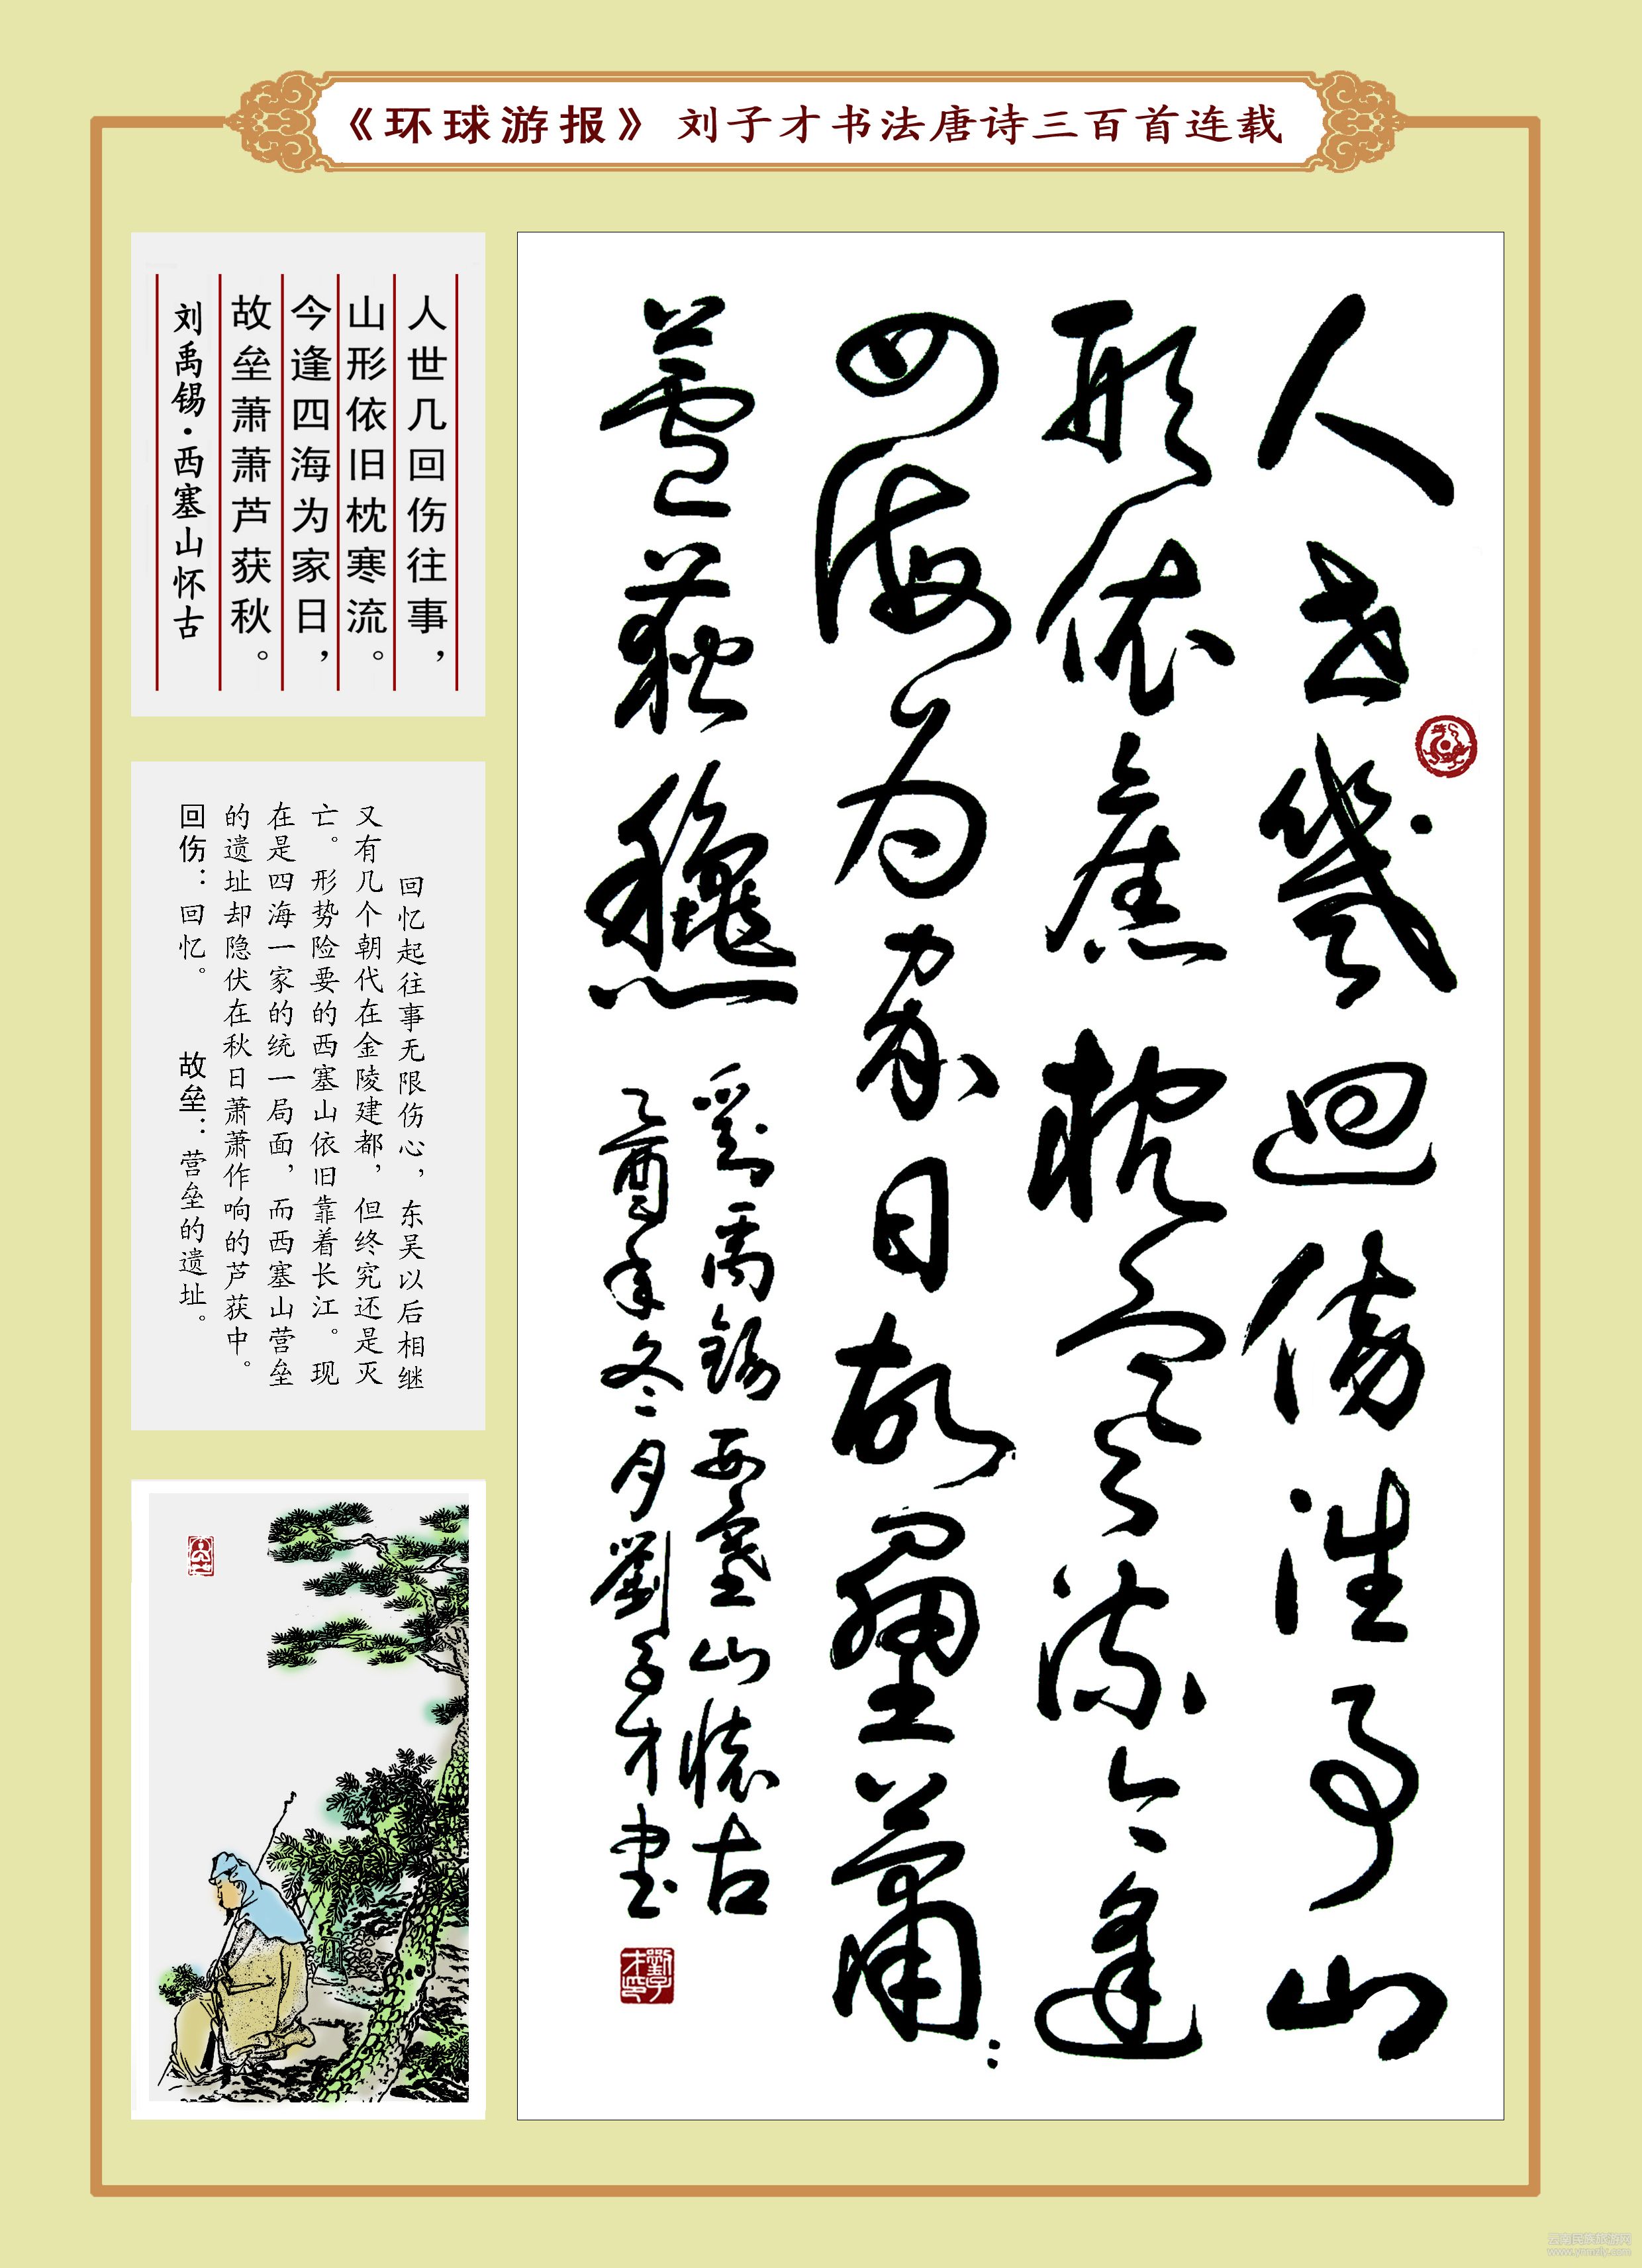 《环球游报》刘子才书法唐诗三百首连载
人世几回伤往事，
山形依旧枕寒流。
今逢四海为家日，
故垒萧萧芦获秋。
刘禹锡·西塞山怀古
回忆起往事无限伤心，东吴以后相继
又有几个朝代在金陵建都，但终究还是灭
亡。形势险要的西塞山依旧靠着长江。现
在是四海一家的统一局面，而西塞山营垒
的遗址却隐伏在秋日萧萧作响的芦获中。
回伤：回忆。 故垒：营垒的遗址。
人世幾迴傷往事山
形依舊枕寒流今逢
四海为家日故壘蕭：
蘆荻穐
劉禹錫西塞山懷古
乙酉年冬月劉子才書
劉子才印
云南民族旅游网
www.ynmzlp.com